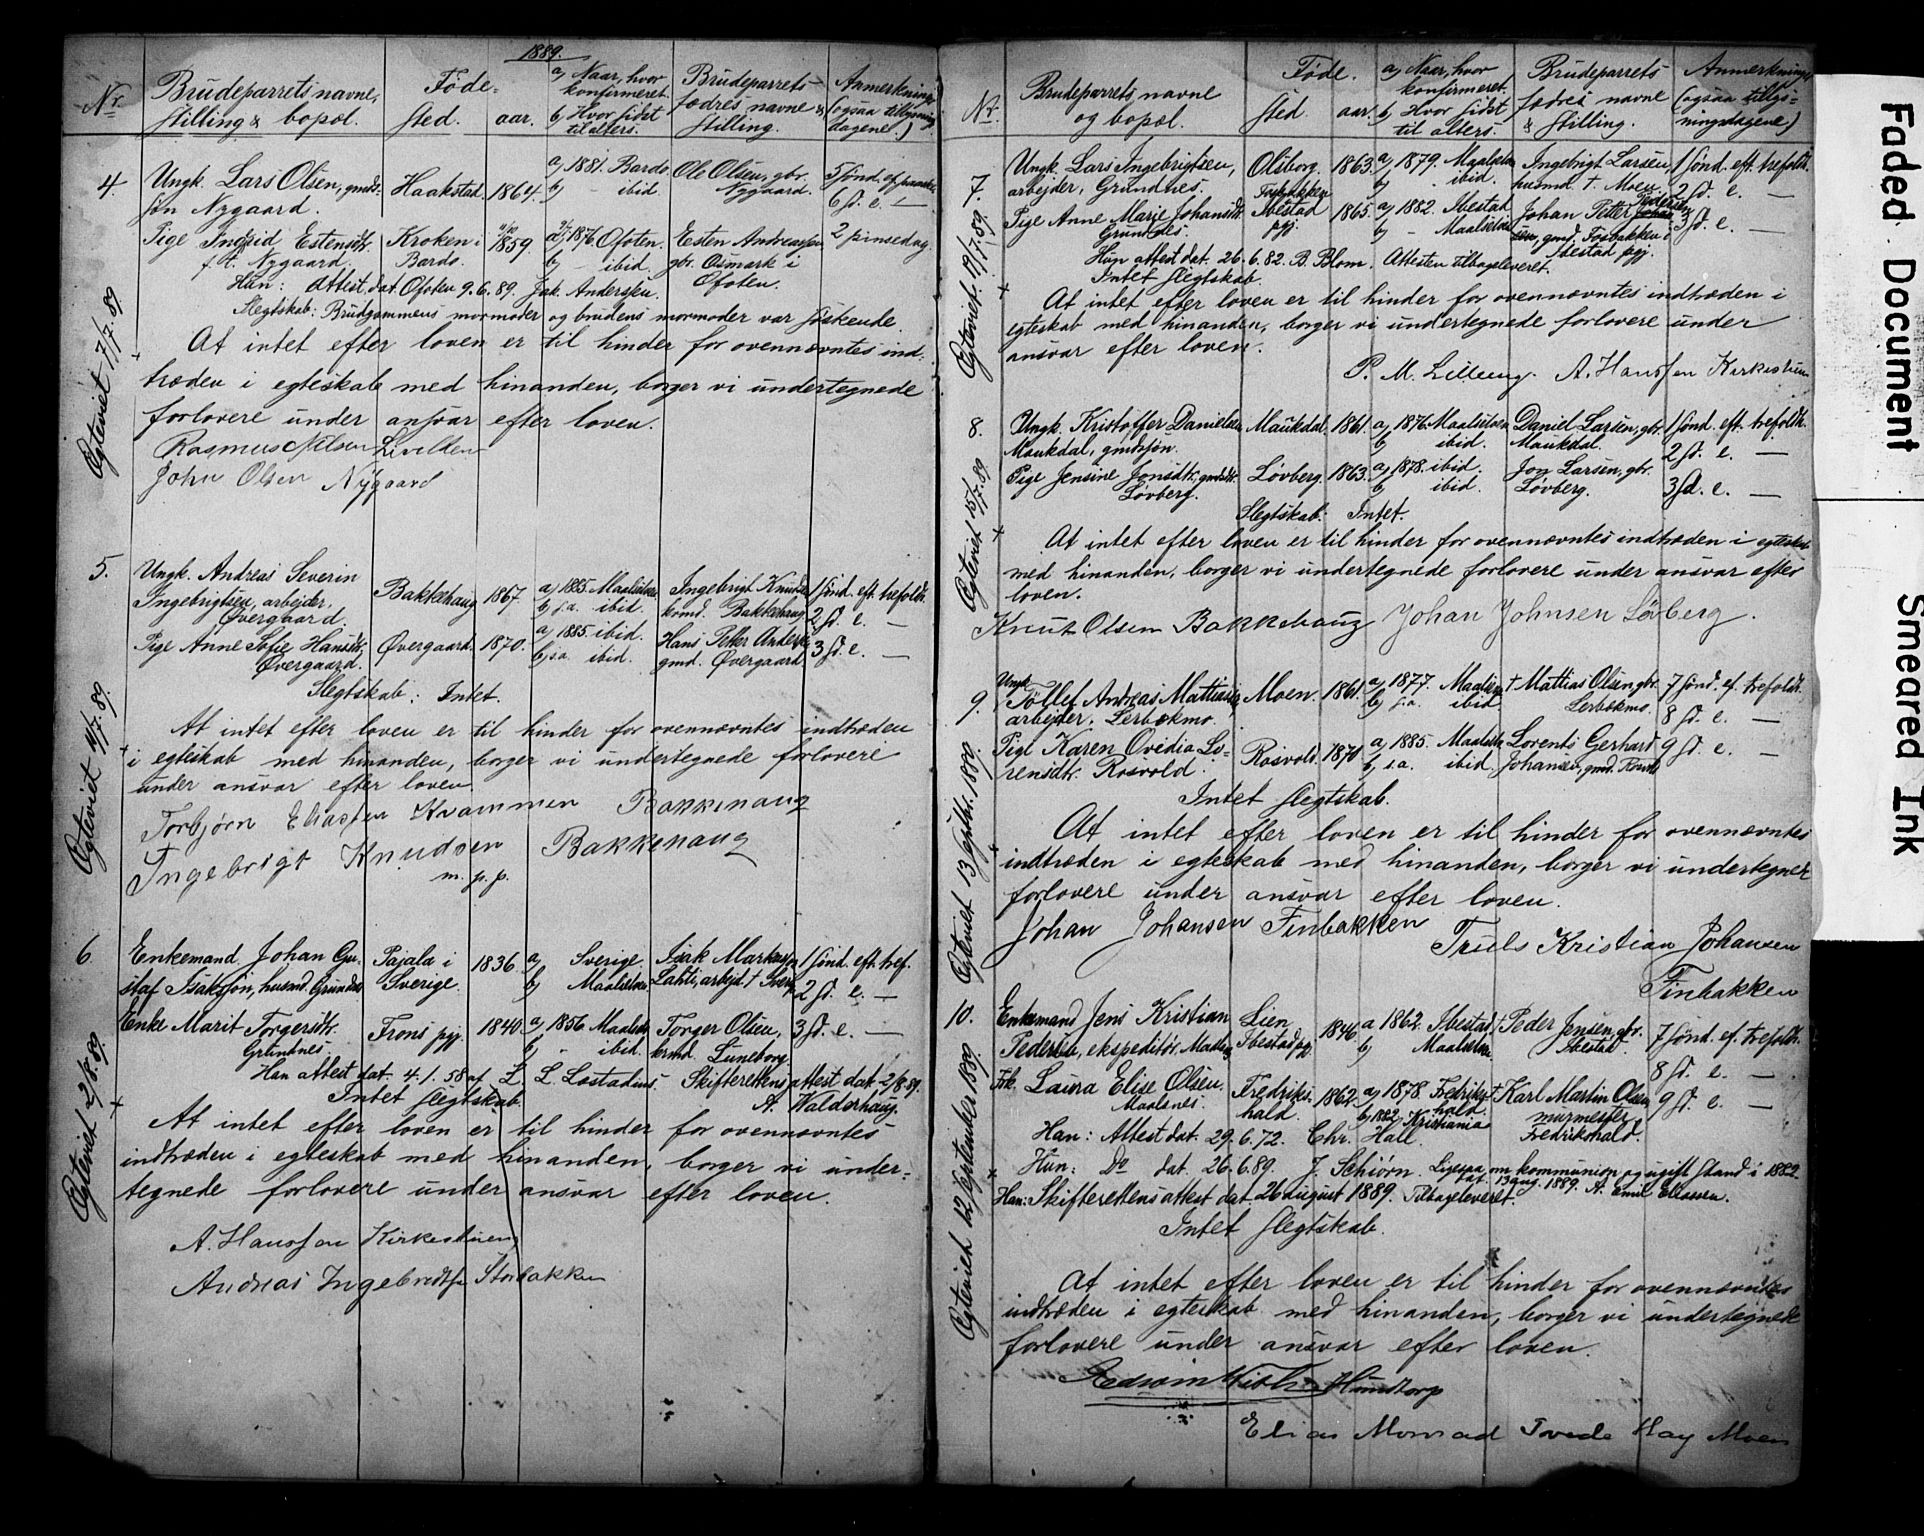 1889.
Nr.
Brudeparrets navne, stilling & bopæl.
Føde-
sted. aar.
a, Naar, hvor konfirmeret. b, Hvor sidst til alters.
Brudeparrets fædres navne & stilling.
Anmerkninger (ogsaa tillysningsdagene.)
4 Ungk. Lars Olsen, gmds- Haakstad. 1864. a, 1881. Bardo Ole Olsen, gbr. 5 sønd. ef.
søn Nygaard. b, - ibid Nygaard. 6 s. e. —
Pige Ingrid Estensdtr. Kroken i 1859. a, 1876 Ofoten. Esten Andreassen 2 pinsedag
f. t. Nygaard. Bardo. b, - ibid. gbr. Osmark i
Han: Attest dat. Ofoten 9.6.89. Jak. Anderssen. Ofoten.
Slegtskab: Brudgommens mormoder og brudens mormoder var søskende.
At intet efter loven er til hinder for ovennævntes ind-
træden i egteskab med hinanden, borger vi undertegnede
forlovere under ansvar efter loven.
Rasmus Nilsen
John Olsen Nygaard
Egteviet 7/7.89
5. Ungk. Andreas Severin
Ingebrigtsen, arbejder, Bakkehaug 1867. a, 1885. Maalselven Ingebrigt Knudsen 1 sønd. eft. trefoldh.
Øvergaard. b, s.a. ibid. Bakkehaug 2 s. e. —
Pige Anne Sofie Hansdtr, Øvergaard. 1870. a, 1885. ibid. Hans Petter Anders 3 s. e. —
Øvergaard. b, s.a. ibid. gmd. Øvergaard
Slegtskab: Intet.
At intet efter loven er til hinder for ovennævntes indtræden
i egteskab med hinanden, borger vi undertegnede forlovere
under ansvar efter loven.
Torbjørn Eliassen Kvammen Bakkehaug
Ingebrigt Knudsen Bakkehaug
m. p. p.
6 Enkemand Johan Gu- Pajala i 1836. a, Sverige Isak Markus 1 sønd. eft. tref.
staf Isaksøn, husmd. Grundnes Sverige. b, Maalselven Lahti, arbejd. † Sverige 2 s. e. —
Enke Marit Torgersdtr. Frons pgj. 1840. a, 1856 Maalselv Torger Olsen, 3 s. e. —
Grundnes. b, - ibid. Luneborg
Han attest dat. 4.1.58 af L. L. Læstadius. Skifterettens attest dat. 2/8.89.
Intet slegtskab. A. Walderhaug.
At intet efter loven er til hinder for ovennævntes
indtræden i egteskab med hinanden, borger vi under-
tegnede forlovere under ansvar efter loven.
A. Hanssen Kirkestuen
Andreas Ingebretsen Storbakken
Egteviet 2/8.89.
Nr.
Brudeparrets navne og bopæl.
Føde.
sted aar.
a, Naar, hvor konfirmeret. b, Hvor sidst til alters.
Brudeparrets fædres navne & stilling.
Anmerkninger (ogsaa tillysningsdagene.)
7. Ungk. Lars Ingebrigtsen, Olsborg. 1863. a, 1879. Maalselven Ingebrigt Larsen, 1 sønd. eft. trefoldh.
arbejder, Grundnes. b, - ibid. husmd. † Moen. 2 s. e. —
Pige Anne Marie Johansdtr. Ibestad 1865. a, 1882. Ibestad Johan Petter Pedersen 3 s. e. —
Grundnes. pgj. b, - Maalselven gmd. Fosbakken i
Hun attest dat. 26.6.82. B. Blom. Attesten tilbageleveret. Ibestad pgj.
Intet slegtskab.
At intet efter loven er til hinder for ovennævntes indtræden i
egteskab med hinanden, borger vi undertegnede forlovere under
ansvar efter loven.
P. M. Lilleeng. A. Hanssen Kirkestuen
8. Ungk. Kristoffer Danielsen Maukdal. 1861. a, 1876. Maalselven Daniel Larsen, gbr. 1 sønd. eft. trefoldh.
Maukdal, gmdssøn. b, ibid. Maukdal. 2 s. e. —
Pige Jensine Jonsdtr, gmdsdtr. Løvberg. 1863. a, 1878. ibid. Jon Larsen, gbr. 3 s. e. —
Løvberg. b, ibid. Løvberg.
Slegtskab: Intet.
At intet efter loven er til hinder for ovennævntes indtræden i egteskab
med hinanden, borger vi undertegnede forlovere under ansvar efter
loven.
Knut Olsen Bakkehaug Johan Johnsen Løvberg.
Egteviet 15/7.89.
9. Ungk. Tollef Andreas Mattiasen, Moen. 1861. a, 1877. Maalselven † Mattias Olsen, gbr. 7 sønd. ef. trefoldh.
arbejder. Lerbekmo. b, s.a. ibid Lerbekmo. 8 s. e. —
Pige Karen Ovidia Lo- Rosvold. 1870 a, 1885. Maalselv Lorents Gerhard 9 s. e. —
rensdtr. Rosvold. b, s.a. ibid. Johansen, gmd. Rosvold
Intet slegtskab.
At intet efter loven er til hinder for ovennævntes
indtræden i egteskab med hinanden, borger vi undertegnede
forlovere under ansvar efter loven.
Johan Johansen Finbakken
Truls Kristian Johansen
Finbakken
Egteviet 13 septbr. 1889.
10. Enkemand Jens Kristian Lien 1846. a, 1862. Ibestad † Peder Jensen, gbr. 7 sønd. ef. trefoldh.
Pedersen, ekspeditør, Maalsnes Ibestad pgj. b, Maalselven Ibestad. 8 s. e. —
Frk. Laura Elise Olsen. Fredriks- 1862. a, 1878. Fredriks- † Karl Martin Olsen 9 s. e. —
Maalsnes. hald. hald. murmester,
b, 1882. Kristiania Fredrikshald.
Han: Attest dat. 29.6.72. Chr. Hall.
Hun: Do dat. 26.6.89. J. Schiørn. Ligesaa om kommunion og ugift stand i 1882
dat. 13 aug. 1889. A. Emil Eliassen.
Han: Skifterettens attest dat. 26 august 1889. Tilbageleveret.
Intet slegtskab.
At intet efter loven er til hinder for ovennævntes
indtræden i egteskab med hinanden, borger vi undertegnede
forlovere under ansvar efter loven.
Hundtorp
Elias Monrad Tvede Hay Moen
Egteviet 12 september 1889.
Faded Document
Smeared Ink